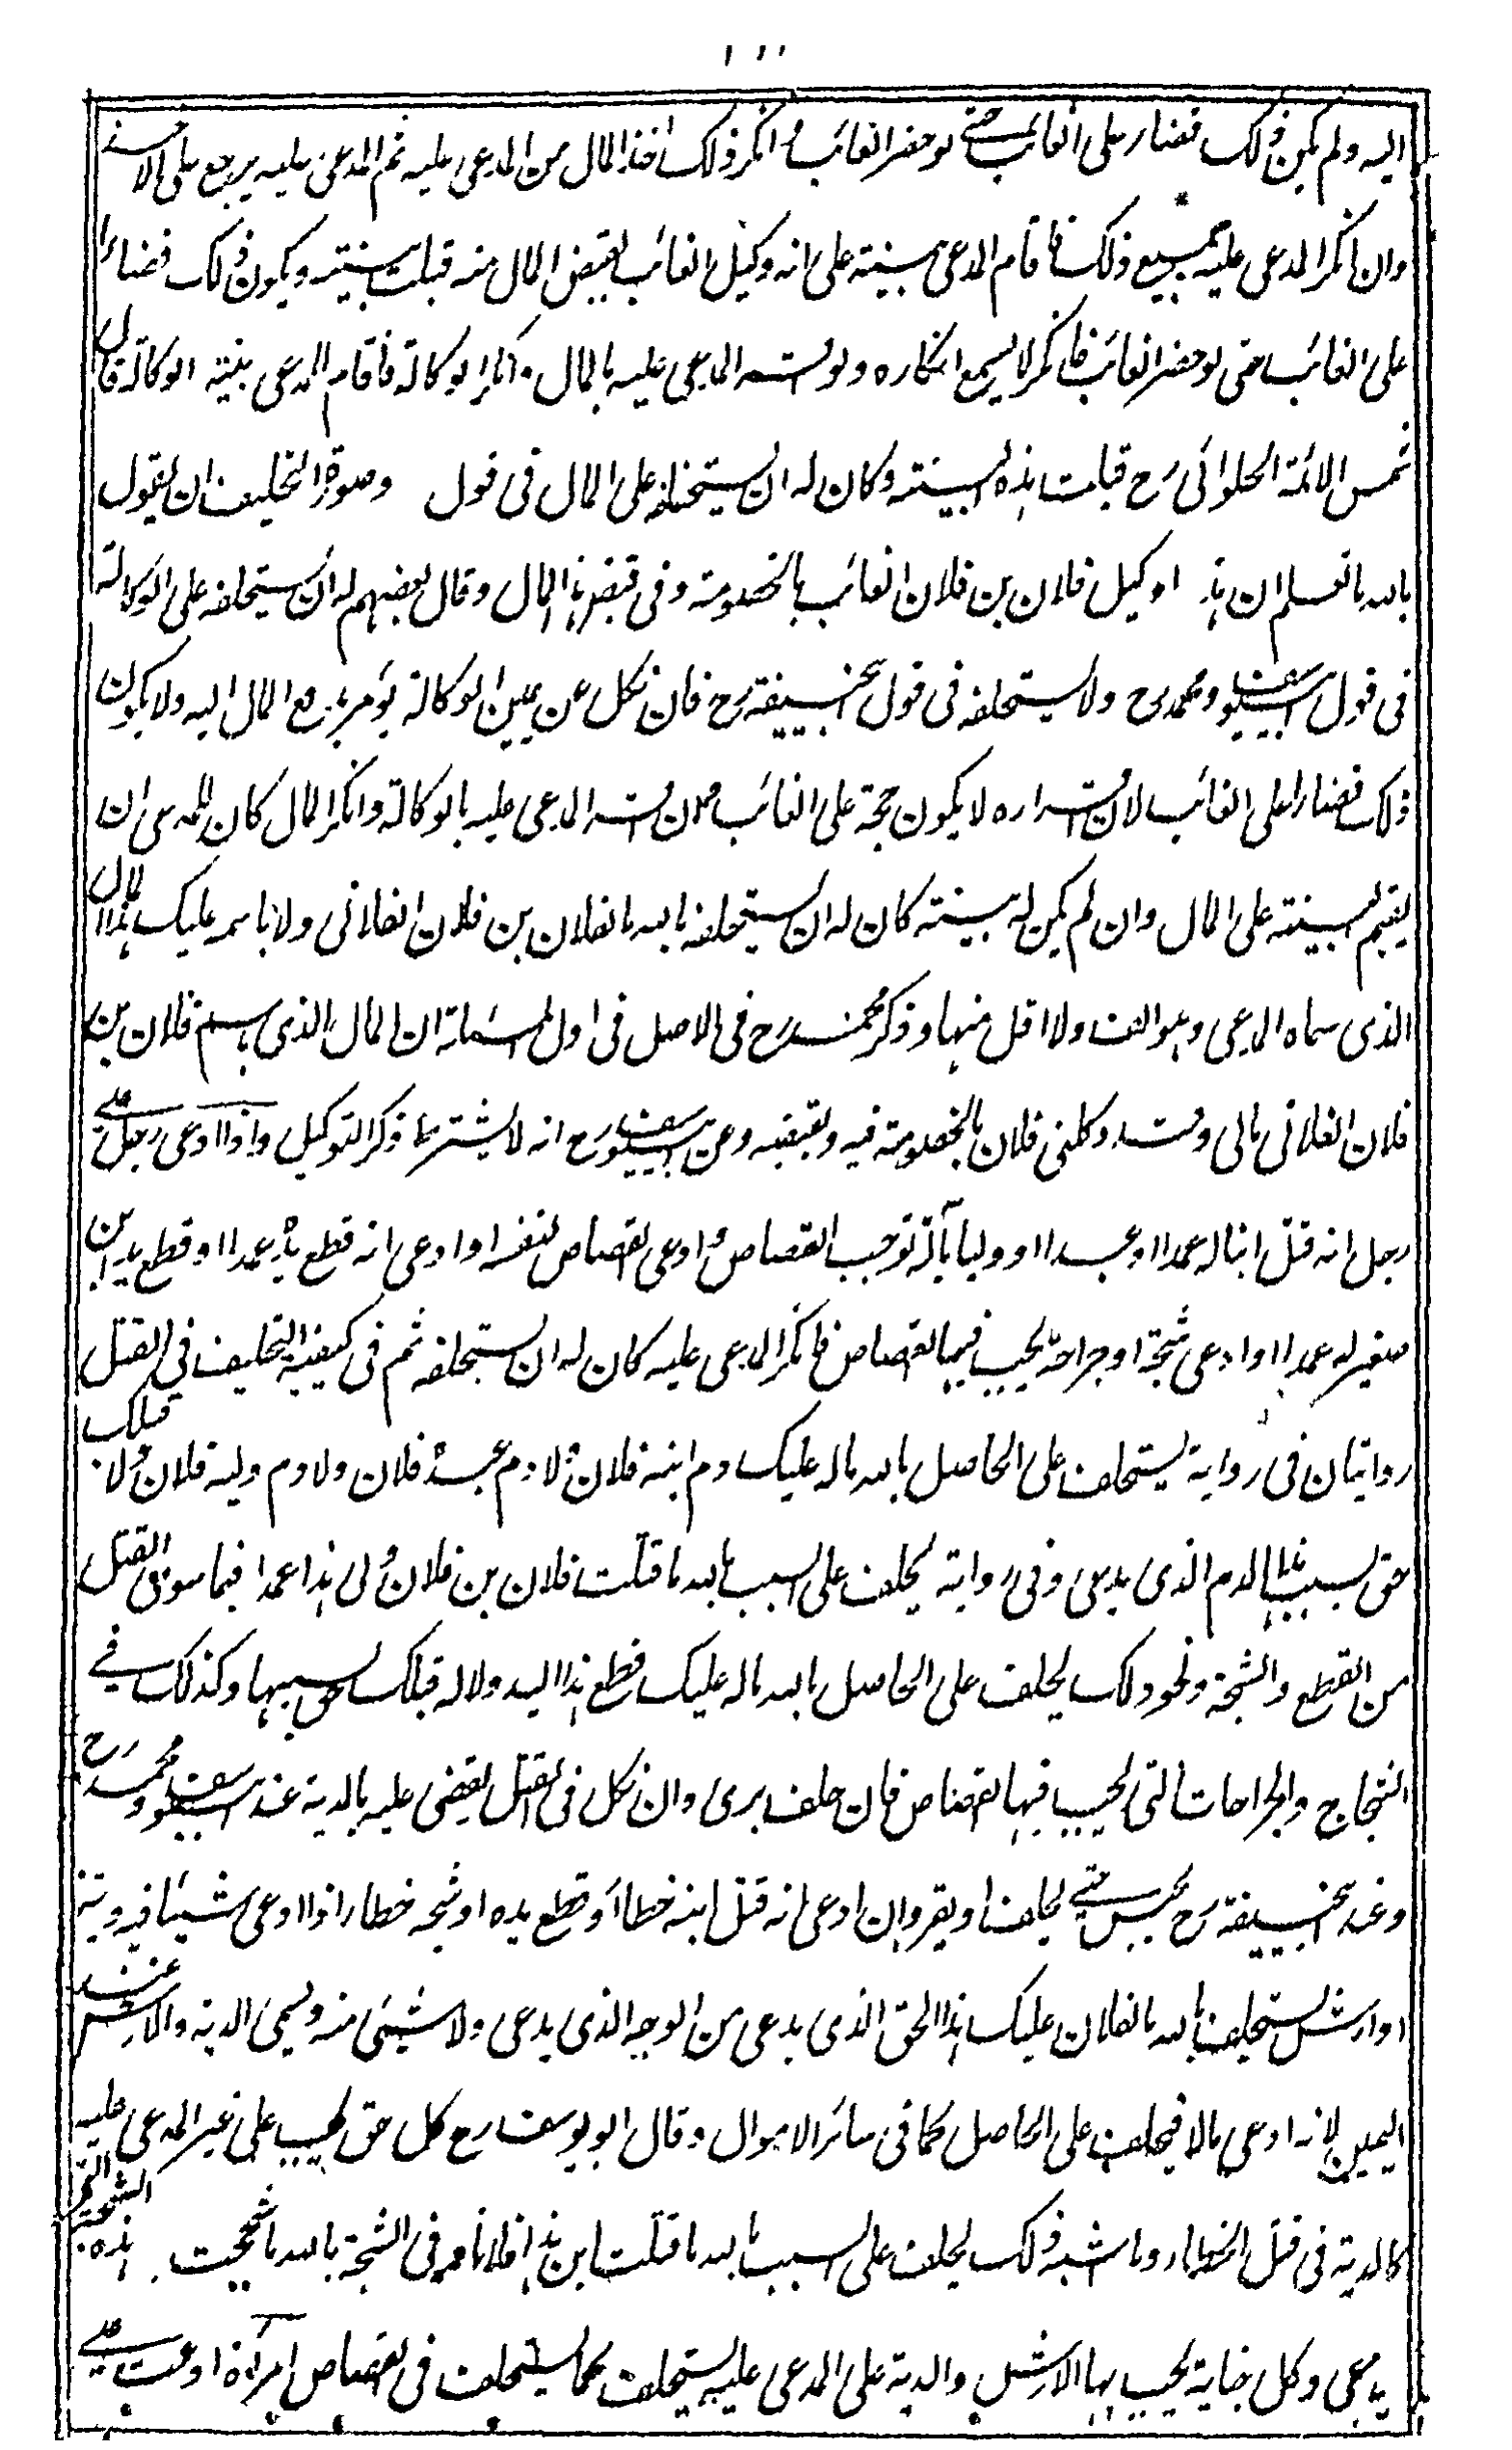 اليه ولم يكن ذلك قضاء على الغائب حتى لو حضر الغائب وانكر ذلك اخذ المال من المدعى عليه ثم المدعى عليه يرجع على الآخذ
وان انكر المدعى عليه جميع ذلك فاقام المدعى بينة على انه وكيل الغائب بقبض المال منه قبلت بينته ويكون ذلك قضاء
على الغائب حتى لو حضر الغائب فانكر لا يسمع انكاره ولو اقر المدعى عليه بالمال وانكر الوكالة فاقام المدعى بينة الوكالة قال
شمس الائمة الحلوائى رح قبلت هذه البينة وكان له ان يستحلفه على المال فى قول وصورة التحليف ان يقول
بالله ما تعلم ان هذا وكيل فلان بن فلان الغائب بالخصومة وفى قبض هذا المال وقال بعضهم له ان يستحلفه على الوكالة
فى قول ابيوسف ومحمد رح ولا يستحلفه فى قول ابيحنيفة رح فان نكل عن يمين الوكالة يؤمر بدفع المال اليه ولا يكون
ذلك قضاء على الغائب لان اقراره لا يكون حجة على الغائب وان اقر المدعى عليه بالوكالة وانكر المال كان للمدعى ان
يقيم البينة على المال وان لم يكن له بينة كان له ان يستحلفه بالله ما لفلان بن فلان الفلانى ولا باسمه عليك هذا المال
الذى سماه المدعى وهو الف ولا اقل منها وذكر محمد رح فى الاصل فى اول المسئلة ان المال الذى باسم فلان بن
فلان الفلانى مالى وقد وكلنى فلان بالخصومة فيه وبقبضه وعن ابيوسف رح انه لا يشترط ذكر التوكيل واذا ادعى رجل على
رجل انه قتل ابنا له عمدا او عبدا او وليا بآلة توجب القصاص وادعى القصاص لنفسه او ادعى انه قطع يده عمدا او قطع يد ابن
صغير له عمدا او ادعى شجة او جراحة يجب فيها القصاص فانكر المدعى عليه كان له ان يستحلفه ثم فى كيفية التحليف فى القتل
روايتان فى رواية يستحلف على الحاصل بالله ما له عليك دم ابنه فلان ولا دم عبده فلان ولا دم وليه فلان ولا قبلك
حق بسبب هذا الدم الذى يدعى وفى رواية يحلف على السبب بالله ما قتلت فلان بن فلان ولى هذا عمدا فيما سوى القتل
من القطع والشجة ونحو ذلك يحلف على الحاصل بالله ما له عليك قطع هذا اليد ولا له قبلك حق بسببها وكذلك فى
الشجاج والجراحات التى يجب فيها القصاص فان حلف برى وان نكل فى القتل يقضى عليه بالدية عند ابيوسف ومحمد رح
وعند ابيحنيفة رح يحبس حتى يحلف او يقر وان ادعى انه قتل ابنه خطأ او قطع يده او شجه خطأ او ادعى شيئا فيه دية
او ارش يستحلف بالله ما لفلان عليك هذا الحق الذى يدعى من الوجه الذى يدعى ولا شيئى منه ويسمى الدية والارش عند
اليمين لانه ادعى مالا فيحلف على الحاصل كما فى سائر الاموال وقال ابو يوسف رح كل حق يجب على غير المدعى عليه
كالدية فى قتل الخطاء وما اشبه ذلك يحلف على السبب بالله ما قتلت ابن هذا فلانا وفى الشجة بالله ما شججت هذه الشجة التى
يدعى وكل جناية يجب بها الارش والدية على المدعى عليه يستحلف كما يستحلف فى القصاص امرأة ادعت على